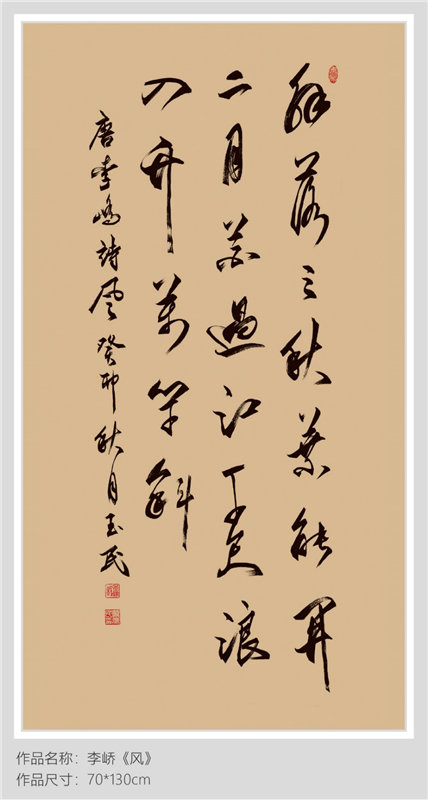 解落三秋葉能開
二月花過江千尺浪
入竹萬竿斜
唐李嶠詩風癸卯秋月玉民
作品名称：李峤《风》
作品尺寸：70*130cm